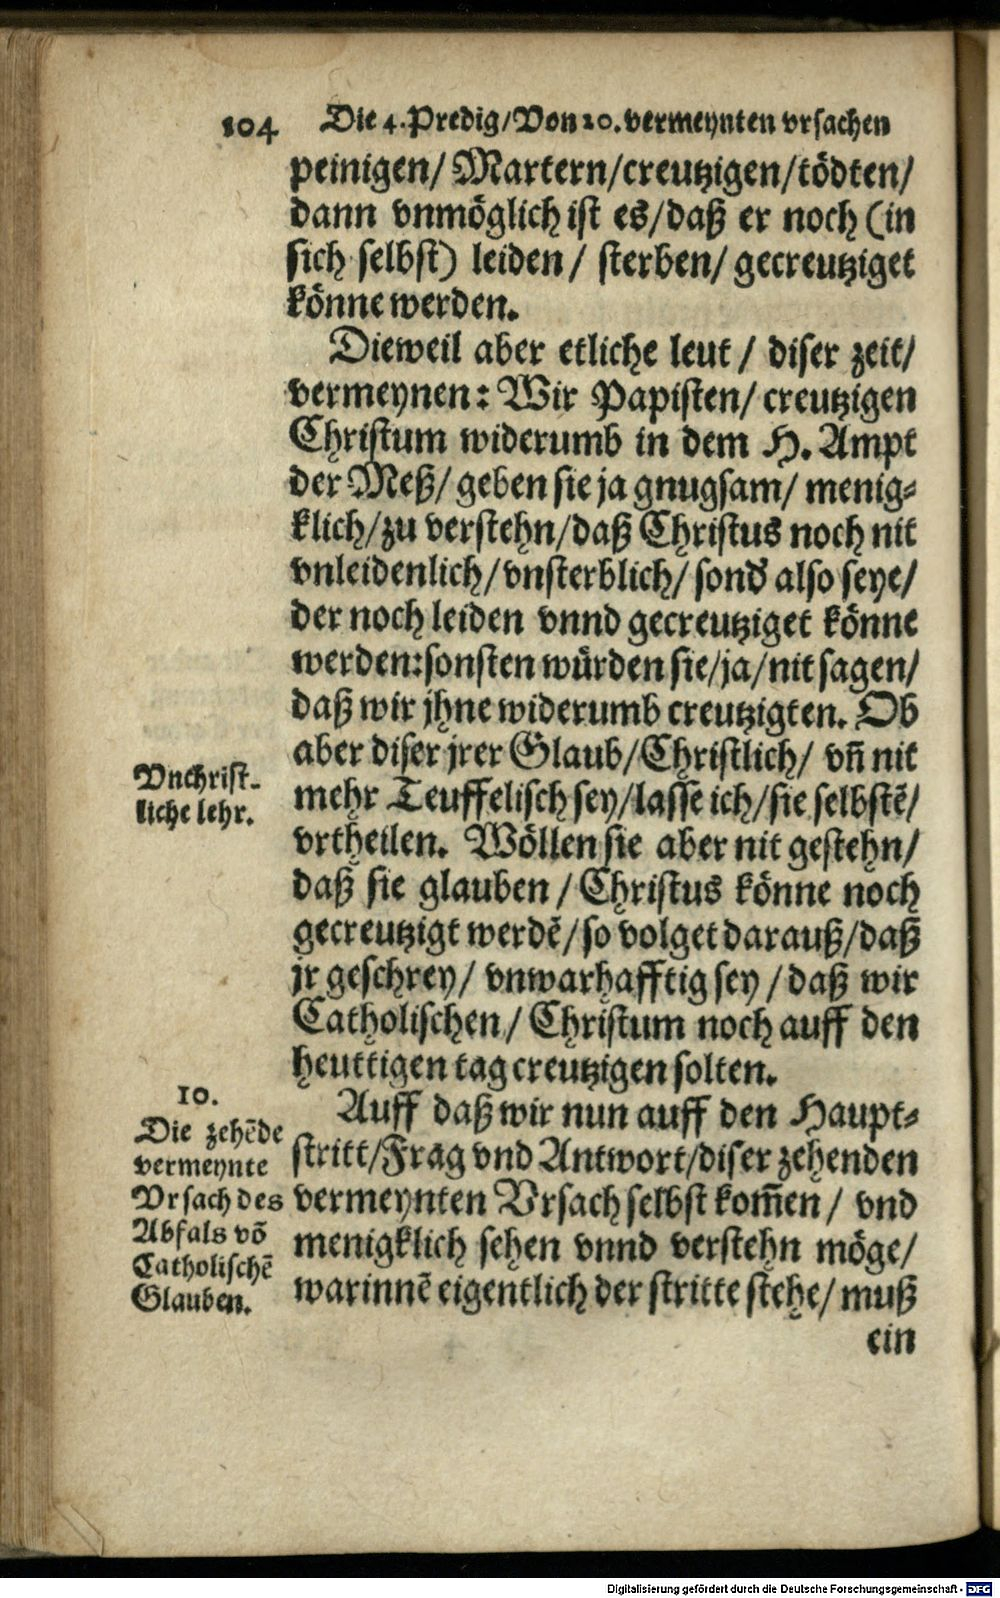 104 Die 4. Predig/Von 10. vermeynten vrsachen
peinigen/ Martern/creutzigen/tödten/
dann vnmöglich ist es/daß er noch (in
sich selbst) leiden/ sterben/ gecreutziget
könne werden.
Dieweil aber etliche leut/ diser zeit/
vermeynen: Wir Papisten/ creutzigen
Christum widerumb in dem H. Ampt
der Meß/ geben sie ja gnugsam/ menig-
klich/zu verstehn/daß Christus noch nit
vnleidenlich/vnsterblich/ sond' also seye/
der noch leiden vnnd gecreutziget könne
werden:sonsten würden sie/ja/nit sagen/
daß wir jhne widerumb creutzigten. Ob
aber diser jrer Glaub/Christlich/ vn̄ nit
mehr Teuffelisch sey/lasse ich/sie selbstē/
vrtheilen. Wöllen sie aber nit gestehn/
daß sie glauben/Christus könne noch
gecreutzigt werdē/so volget darauß/daß
jr geschrey/ vnwarhafftig sey/daß wir
Catholischen/ Christum noch auff den
heuttigen tag creutzigen solten.
Auff daß wir nun auff den Haupt-
stritt/Frag vnd Antwort/diser zehenden
vermeynten Vrsach selbst kom̄en/ vnd
menigklich sehen vnnd verstehn möge/
warinnē eigentlich der stritte stehe/ muß
ein
Vnchrist-
liche lehr.
10.
Die zehēde
vermeynte
Vrsach des
Abfals vō
Catholischē
Glauben.
Digitalisierung gefördert durch die Deutsche Forschungsgemeinschaft - DFG